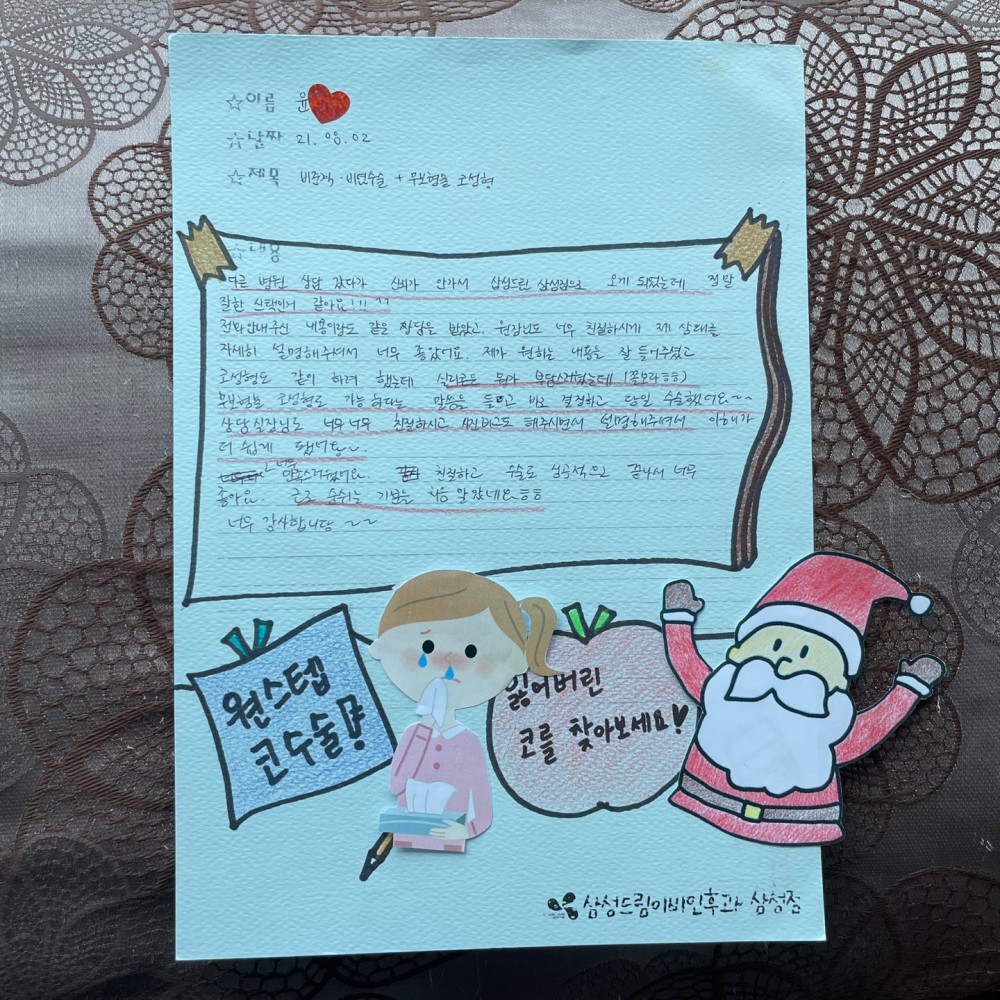 ☆이름 윤
☆날짜 21. 08. 02
☆제목 비중격·비염수술 + 무보형물 코성형
☆내용
다른 병원 상담 갔다가 신뢰가 안가서 삼성드림 삼성점으로 오게 되었는데 정말
잘한 선택인거 같아요!!! ^^
전화안내주신 내용이랑도 같은 진단을 받았고, 원장님도 너무 친절하시게 제 상태를
자세히 설명해주셔서 너무 좋았어요. 제가 원하는 내용을 잘 들어주셨고
코성형도 같이 하려 했는데 실리콘은 뭔가 부담스러웠는데 (쫄보라ㅎㅎ)
무보형물 코성형도 가능하다는 말씀을 듣고 바로 결정하고 당일 수술했어요~~
상담실장님도 너무너무 친절하시고 사진비교도 해주시면서 설명해주셔서 이해가
더 쉽게 됐어요~
너무 만족스러웠어요. 친절하고 수술도 성공적으로 끝나서 너무
좋아요. 코로 숨쉬는 기분을 처음 알았네요ㅎㅎ
너무 감사합니당 ~~
원스텝
코수술!
잃어버린
코를 찾아보세요!
삼성드림이비인후과 삼성점